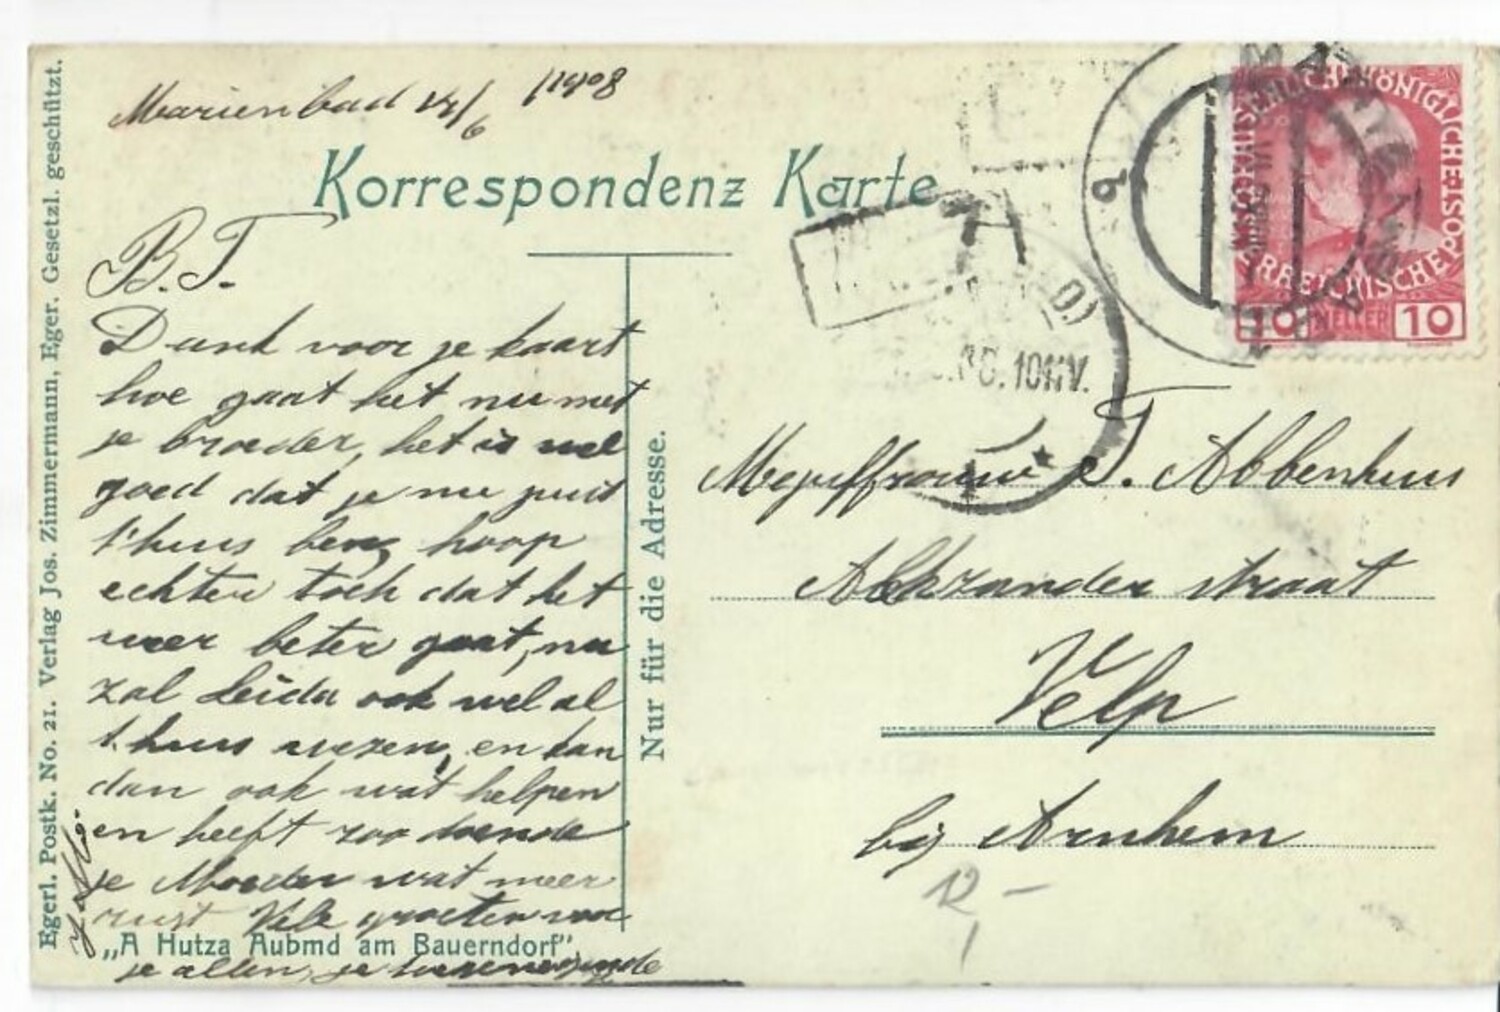 Marienbad 14/6 1908
Korrespondenz Karte
B. T.
Dank voor je kaart
hoe gaat het nu met
je broeder, het is wel
goed dat je nu juist
t'huis bent, hoop
echter toch dat het
weer beter gaat, nu
zal Leida ook wel al
t'huis wezen, en kan
dan ook wat helpen
en heeft zoo doende
je Moeder wat meer
rust Vele groeten voor
je allen, je
„A Hutza Aubmd am Bauerndorf"
Egerl. Postk. No. 21. Verlag Jos. Zimmermann, Eger. Gesetzl. geschützt.
Nur für die Adresse.
KAISERLICHE KÖNIGLICHE ÖSTERREICHISCHE POST
10 HELLER 10
10
Mejuffrouw T. Abbenhuis
Alexander straat
Velp
bij Arnhem
12 -